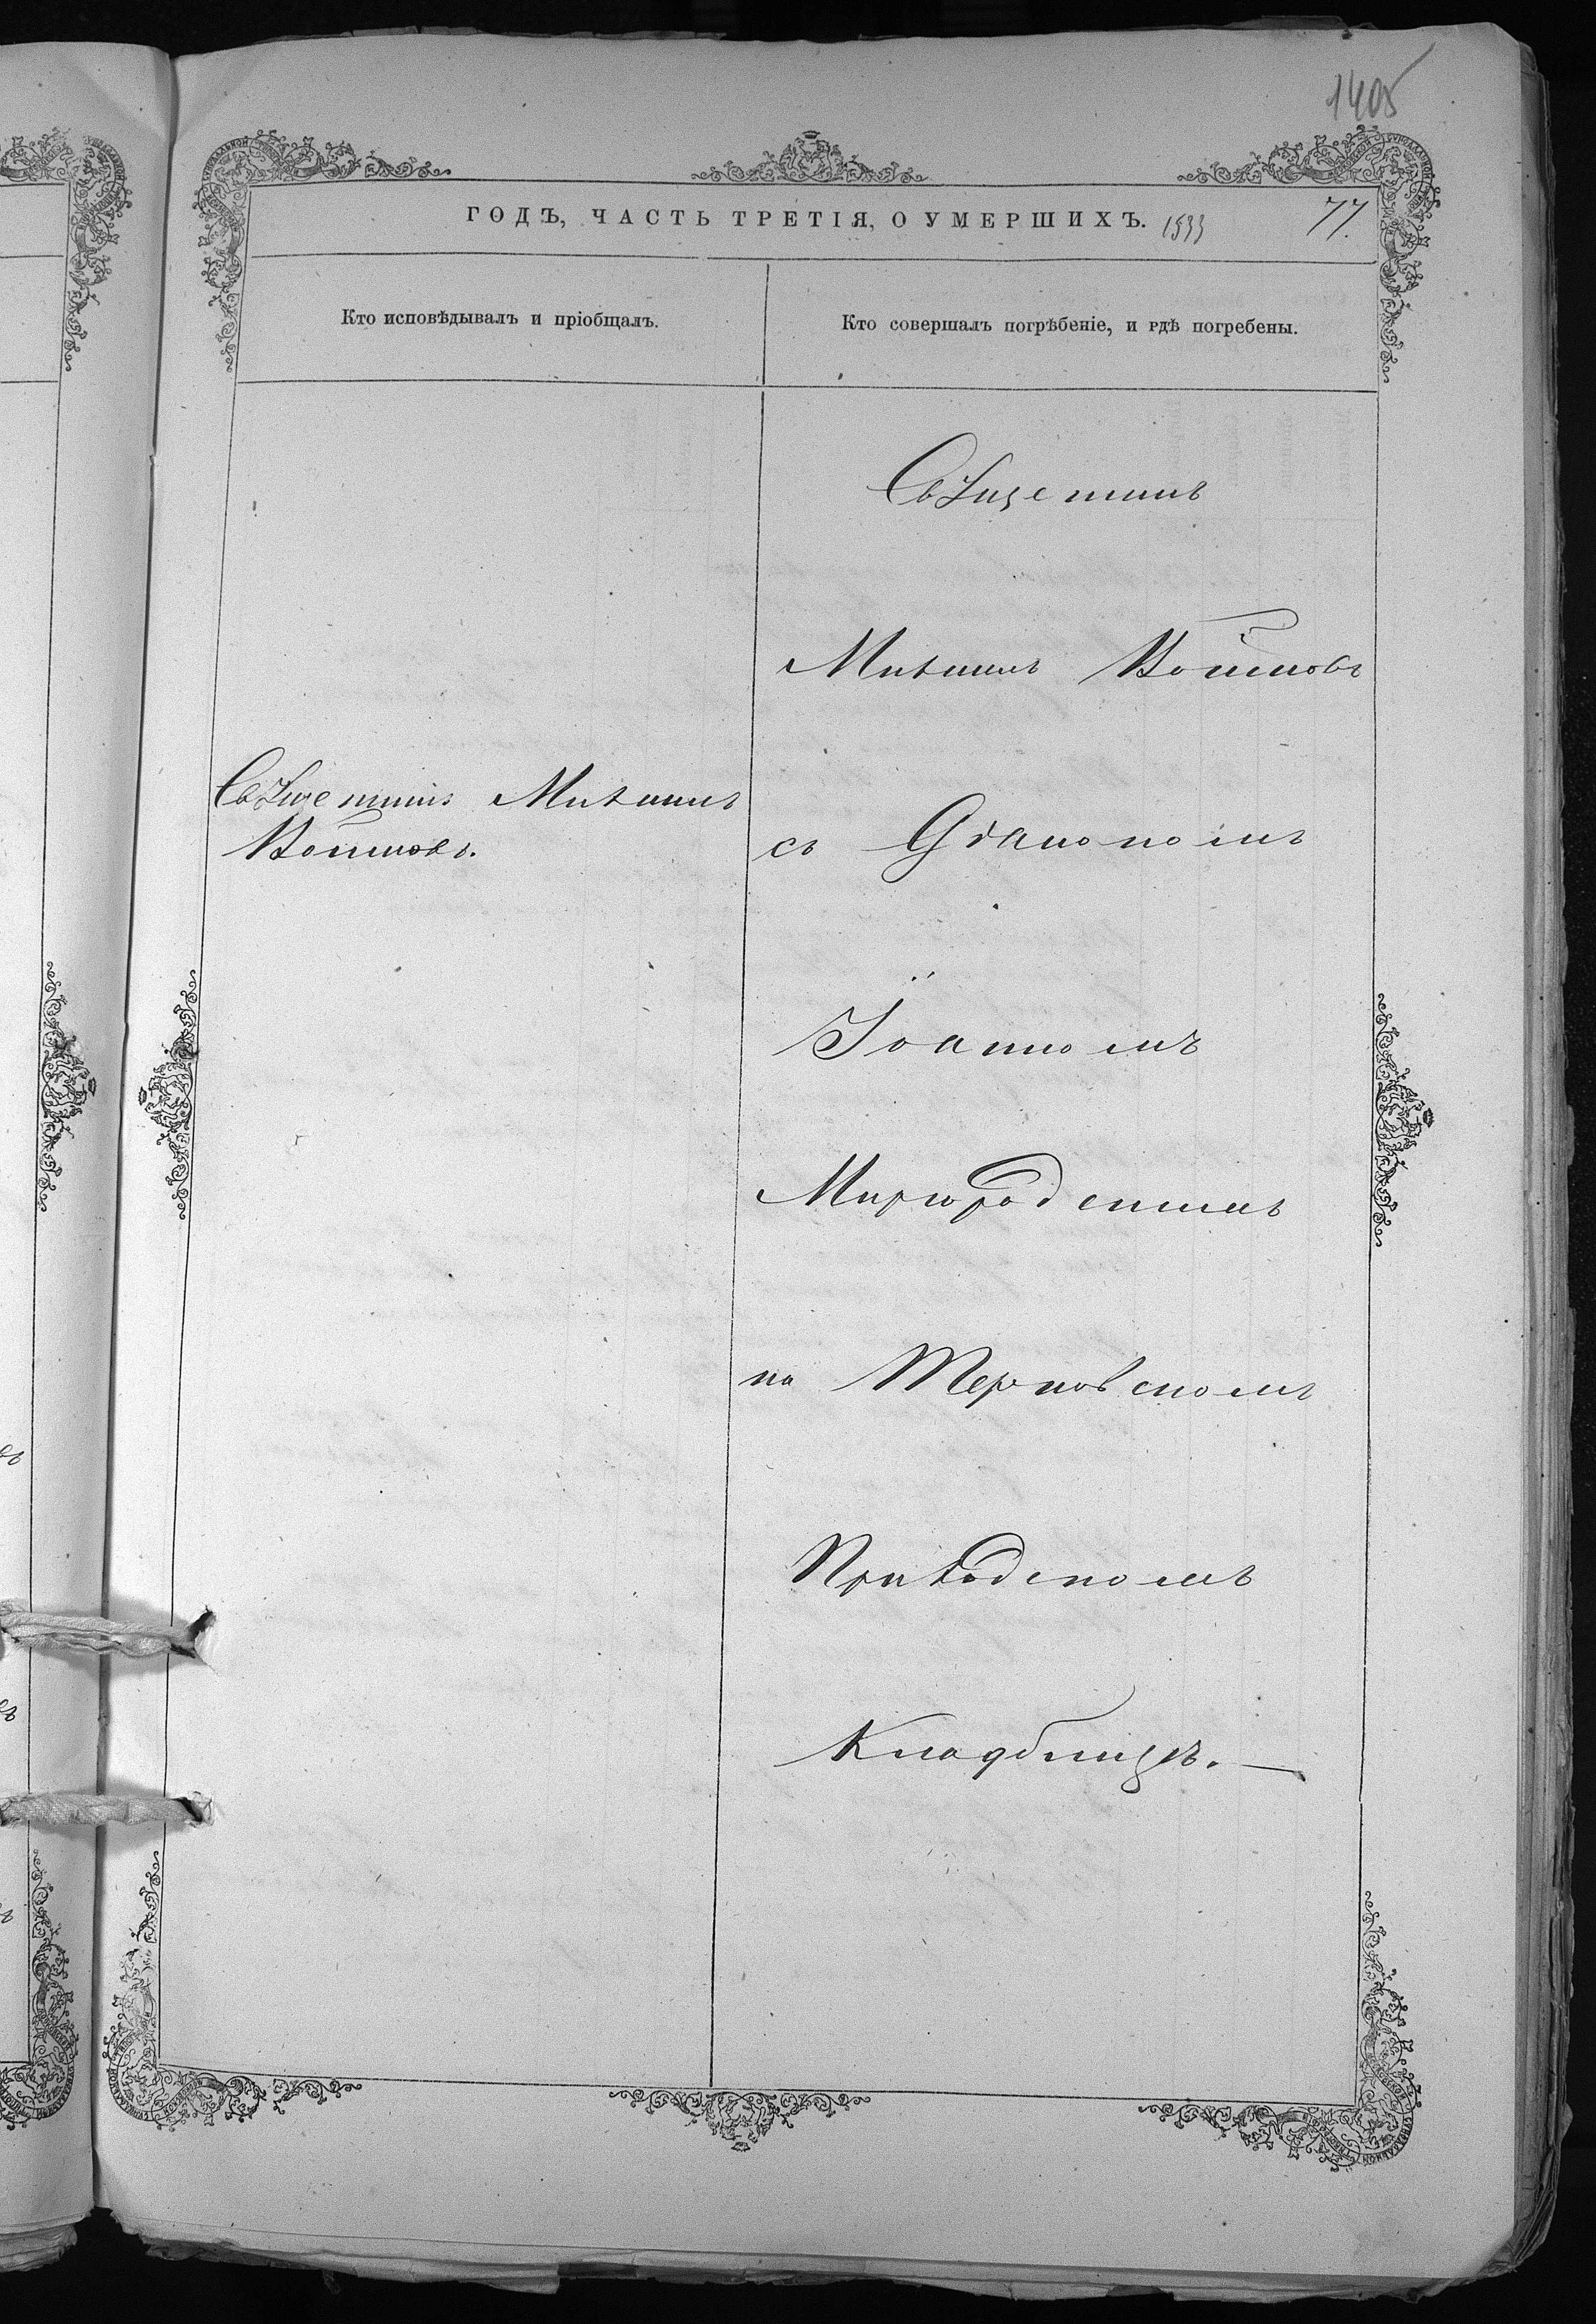 1405
ГОДЪ, ЧАСТЬ ТРЕТІЯ, О УМЕРШИХЪ. 1533 77.
Кто исповѣдывалъ и пріобщалъ.
Кто совершалъ погрѣбеніе, и гдѣ погребены.
Священникъ Михаилъ
Войновъ.
Священникъ
Михаилъ Войновъ
съ Діакономъ
Іоанномъ
Миргородскимъ
на Терновскомъ
Приходскомъ
Кладбищѣ.